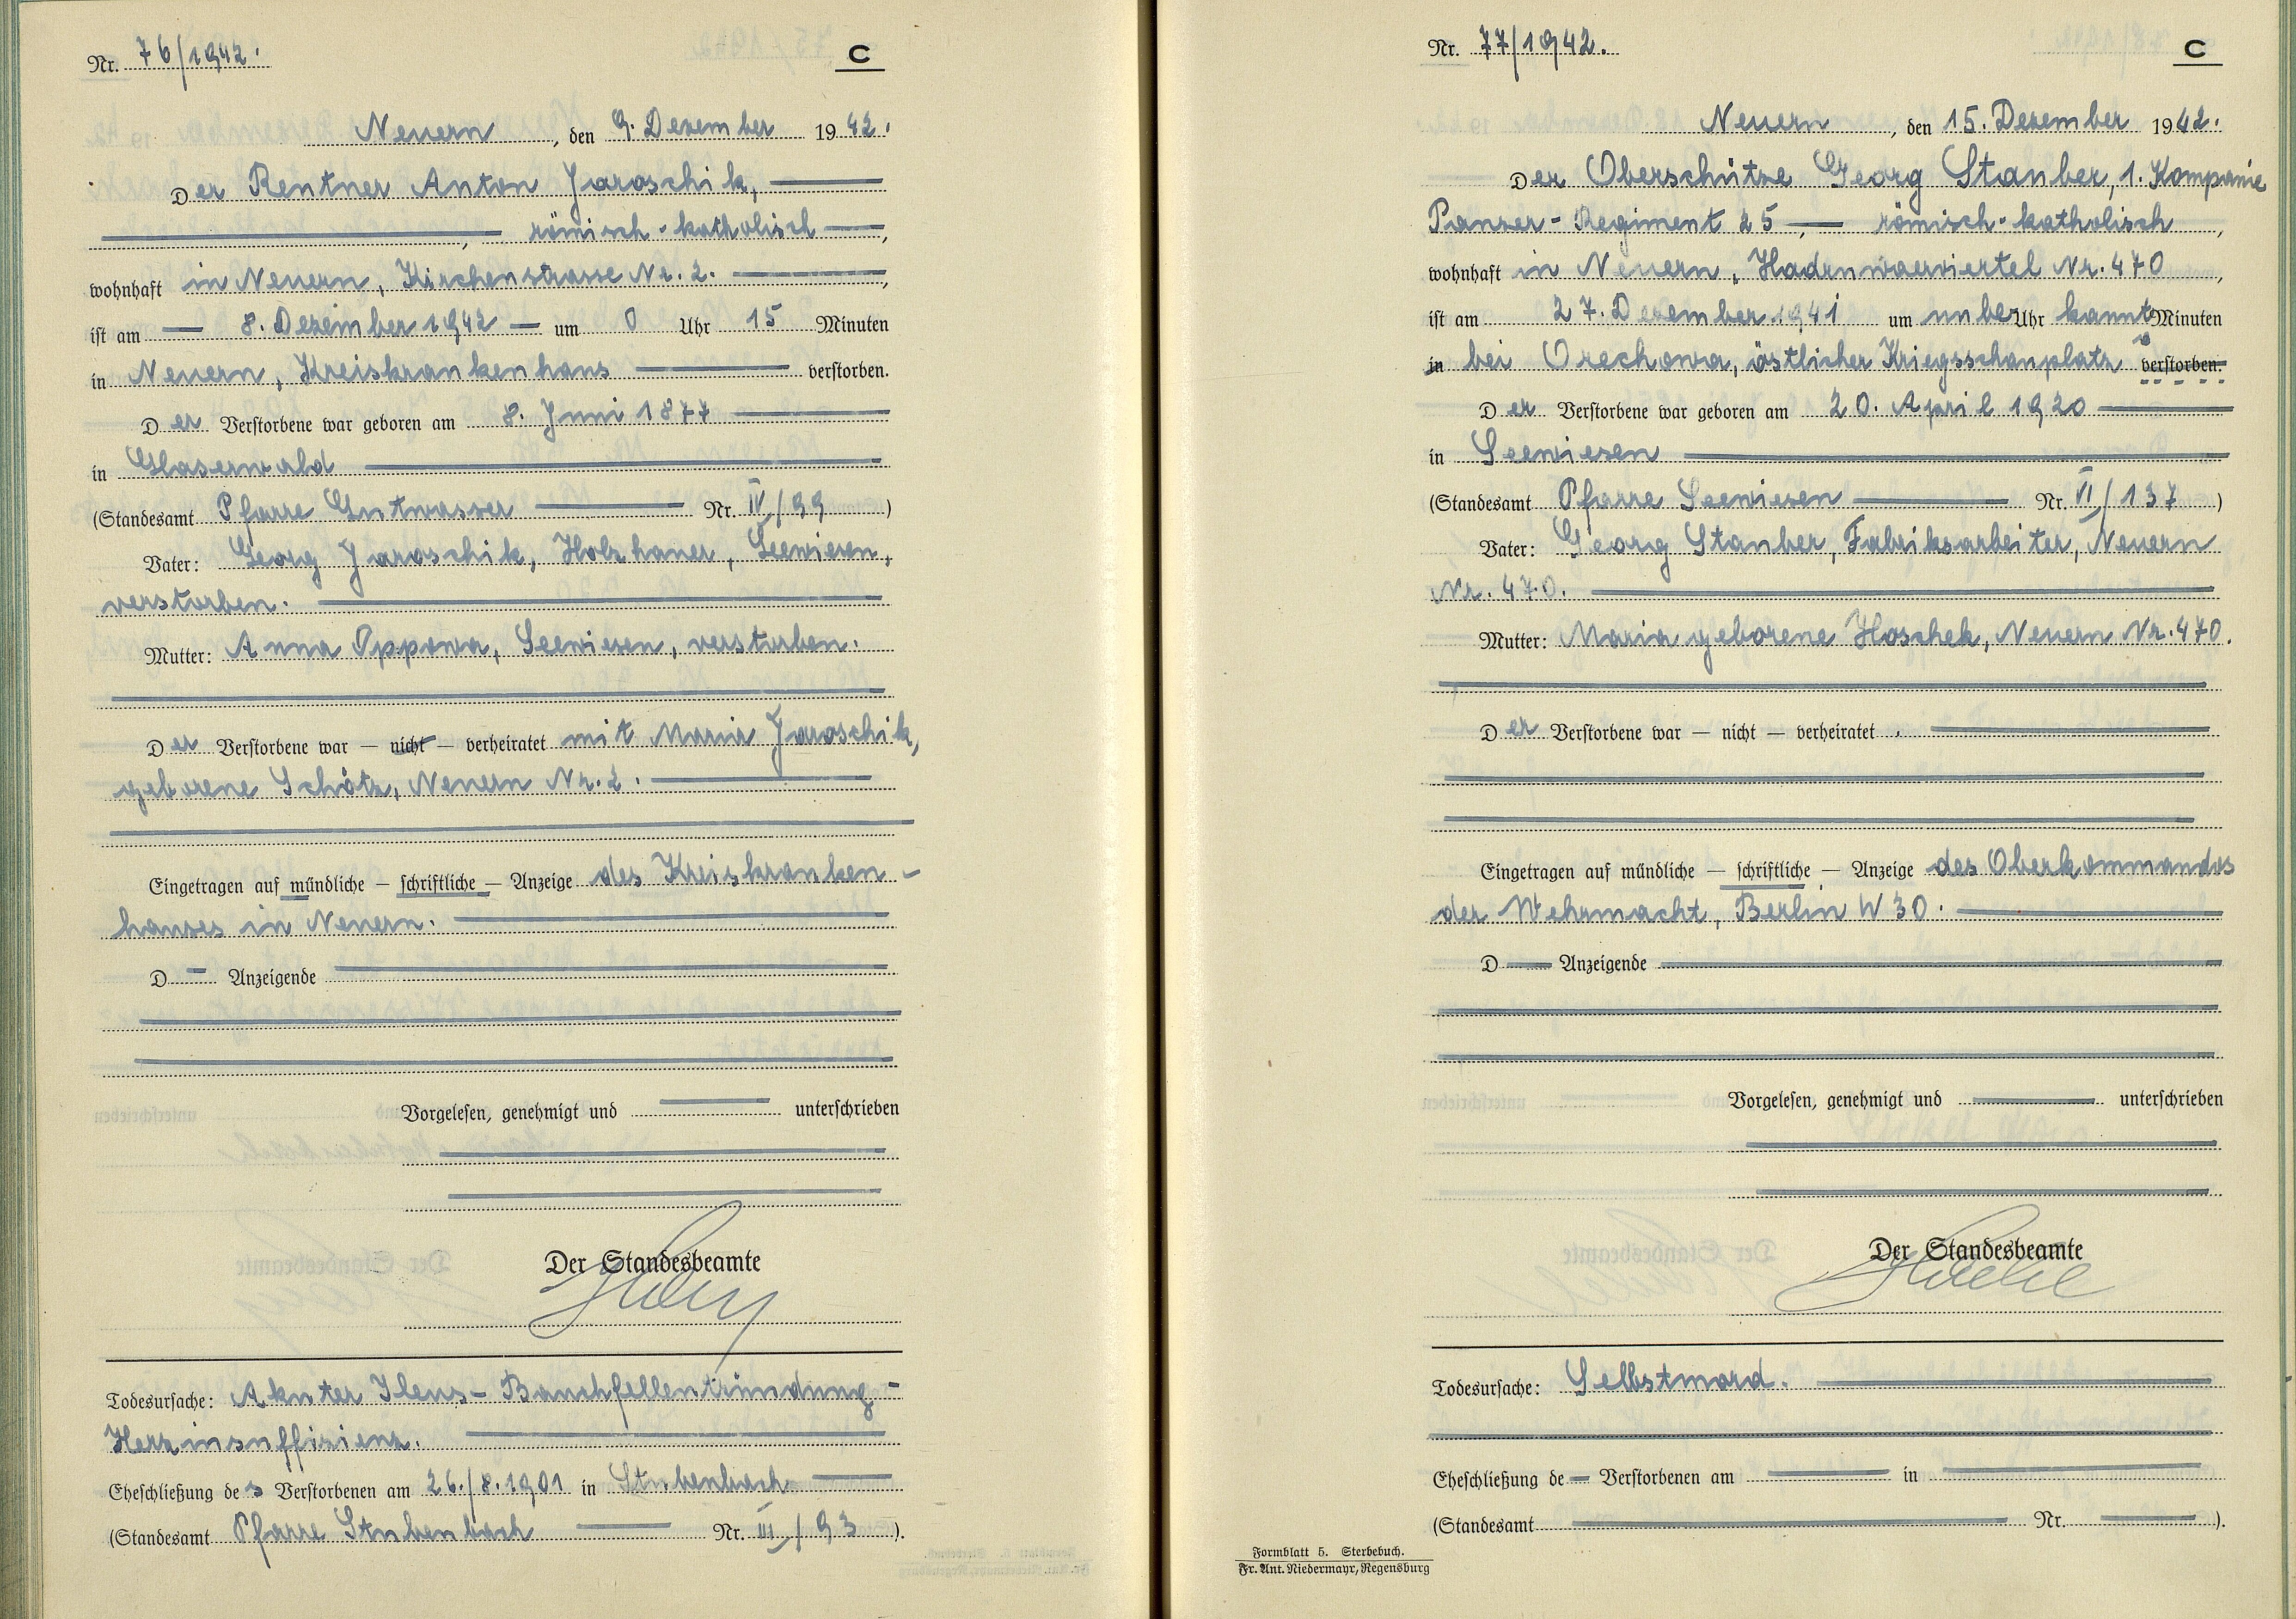 Nr. 76/1942.
C
Neuern, den 9. Dezember 1942.
Der Rentner Anton Jaroschik,
, römisch-katholisch,
wohnhaft in Neuern, Kirchenstrasse Nr. 2.
ist am 8. Dezember 1942 um 0 Uhr 15 Minuten
in Neuern, Kreiskrankenhaus verstorben.
Der Verstorbene war geboren am 8. Juni 1877
in Glaserwald
(Standesamt Pfarre Gutwasser Nr. IV/99)
Vater: Georg Jaroschik, Holzhauer, Seewiesen,
verstorben.
Mutter: Anna Oppowa, Seewiesen, verstorben.
Der Verstorbene war — nicht — verheiratet mit Maria Jaroschik,
geborene Schötz, Neuern Nr. 2.
Eingetragen auf mündliche — schriftliche — Anzeige des Kreiskranken-
hauses in Neuern.
D Anzeigende
Vorgelesen, genehmigt und unterschrieben
Der Standesbeamte
Todesursache: Akuter Ileus - Bauchfellentzündung -
Herzinsuffizienz.
Eheschließung des Verstorbenen am 26./8.1901 in Stubenbach
(Standesamt Pfarre Stubenbach Nr. III/93).
Nr. 77/1942.
C
Neuern, den 15. Dezember 1942.
Der Oberschütze Georg Stauber, 1. Kompanie
Panzer-Regiment 25, römisch-katholisch,
wohnhaft in Neuern, Nr. 470,
ist am 27. Dezember 1941 um unbe Uhr kannt Minuten
in bei Orechowa, östlicher Kriegsschauplatz verstorben.
Der Verstorbene war geboren am 20. April 1920
in Seewiesen
(Standesamt Pfarre Seewiesen Nr. VI/137)
Vater: Georg Stauber, Fabriksarbeiter, Neuern
Nr. 470.
Mutter: Maria geborene Hoschek, Neuern Nr. 470.
Der Verstorbene war — nicht — verheiratet.
Eingetragen auf mündliche — schriftliche — Anzeige des Oberkommandos
der Wehrmacht, Berlin W 30.
D Anzeigende
Vorgelesen, genehmigt und unterschrieben
Der Standesbeamte
Todesursache: Selbstmord.
Eheschließung de Verstorbenen am in
(Standesamt Nr. ).
Formblatt 5. Sterbebuch.
Fr. Ant. Niedermayr, Regensburg